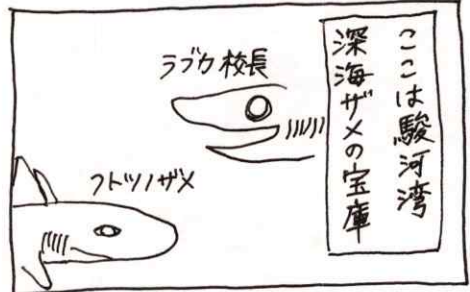 ここは駿河湾
深海ザメの宝庫
ラブカ校長
フトツノザメ